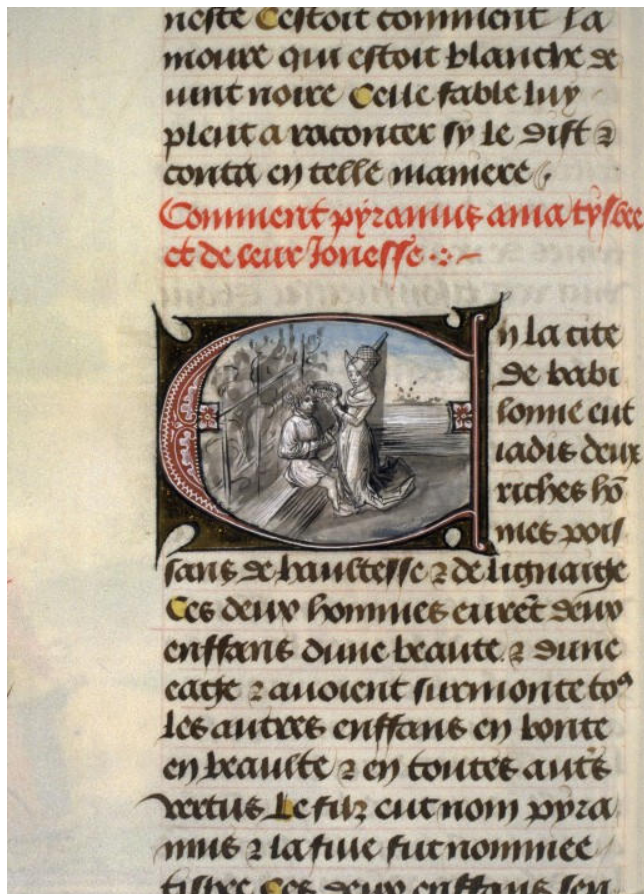 neste Cestoit comment la
moure qui estoit blanche de
uint noire Celle fable luy
pleut a raconter sy le dist ⁊
conta en telle maniere.
Comment pyramus ama tysbee
et de leur Jonesse
En la cite
de babi
lonne eut
iadis deux
riches hō
mes pois
sans de haultesse ⁊ de lignaige
Ces deux hommes eurēt deux
enffans dune beaute ⁊ dune
eage ⁊ auoient surmonte toꝰ
les autres enffans en bonte
en beaulte ⁊ en toutes aut's
vertus Le filz eut nom pyra
mus ⁊ la fille fut nommee
tisbee Ces deux enffans sen